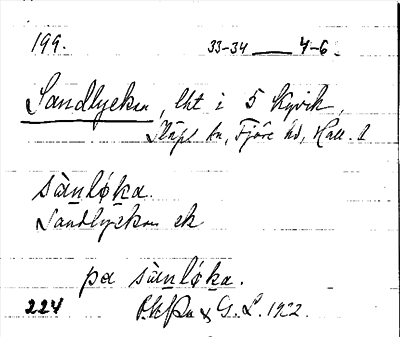 199. 33-34 — 4-6.
Sandlyckan, lht i 5 Kyvik,
Släps sn, Fjäre hd, Hall. l
sànlø̀ka.
Sandlyckan ek
pa sànlø̀ka.
224 G. L. 1922.